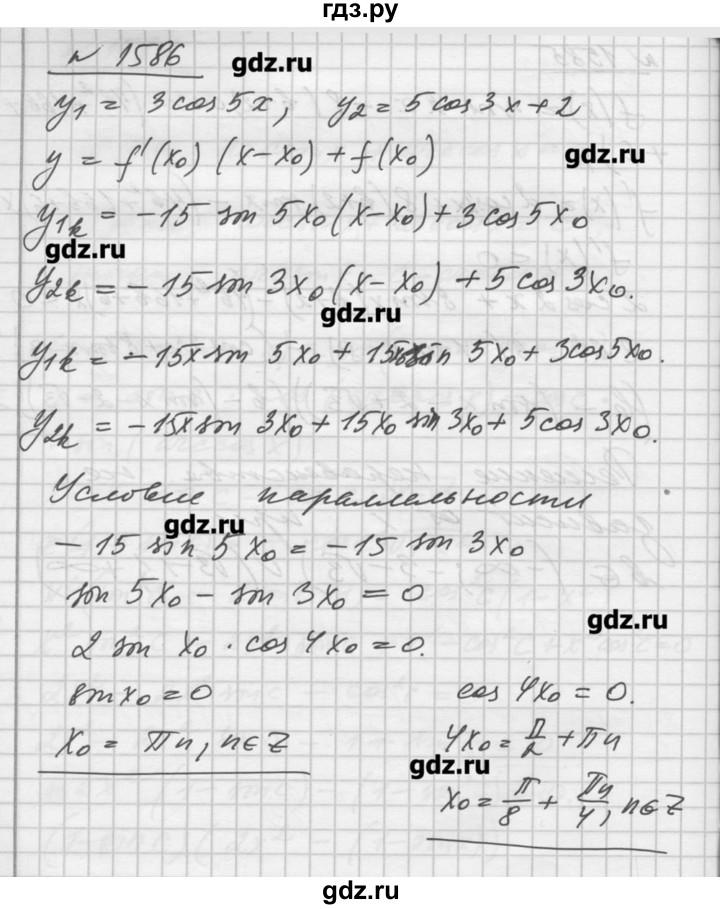 гдз.ру
№ 1586
gdz.ru
y₁ = 3 cos 5x, y₂ = 5 cos 3x + 2
gdz.ru
y = f'(x₀) (x - x₀) + f(x₀)
y₁ₖ = - 15 sin 5x₀ (x - x₀) + 3 cos 5x₀
gdz.ru
y₂ₖ = - 15 sin 3x₀ (x - x₀) + 5 cos 3x₀.
gdz.ru
y₁ₖ = - 15x sin 5x₀ + 15x₀ sin 5x₀ + 3cos 5x₀.
y₂ₖ = - 15x sin 3x₀ + 15x₀ sin 3x₀ + 5 cos 3x₀.
Условие параллельности
gdz.ru
- 15 sin 5x₀ = - 15 sin 3x₀
sin 5x₀ - sin 3x₀ = 0
gdz.ru
2 sin x₀ · cos 4x₀ = 0.
sin x₀ = 0 cos 4x₀ = 0.
x₀ = πn, n∈Z 4x₀ = π/2 + πn
gdz.ru
x₀ = π/8 + πn/4, n∈Z
gdz.ru